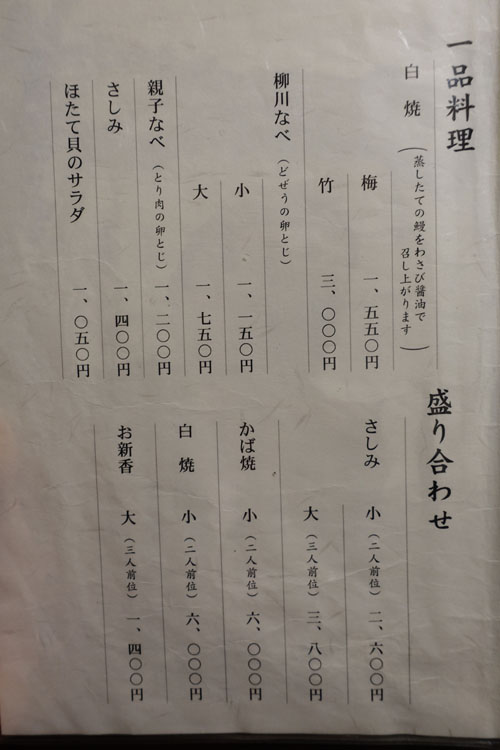 一品料理
白焼(蒸したての鰻をわさび醤油で
召し上がります)
梅 一、五五〇円
竹 三、〇〇〇円
柳川なべ(どぜうの卵とじ)
小 一、一五〇円
大 一、七五〇円
親子なべ(とり肉の卵とじ) 一、二〇〇円
さしみ 一、四〇〇円
ほたて貝のサラダ 一、〇五〇円
盛り合わせ
さしみ 小(二人前位) 二、六〇〇円
大(三人前位) 三、八〇〇円
かば焼 小(二人前位) 六、〇〇〇円
白焼 小(二人前位) 六、〇〇〇円
お新香 大(三人前位) 一、四〇〇円